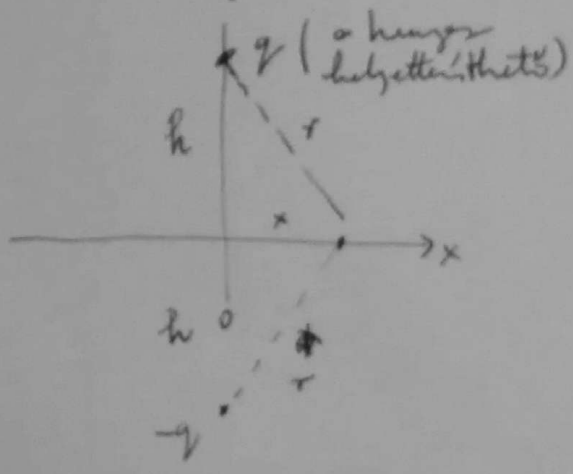 q ( a henger
helyettesíthető )
h
r
x
x
h
0
r
-q